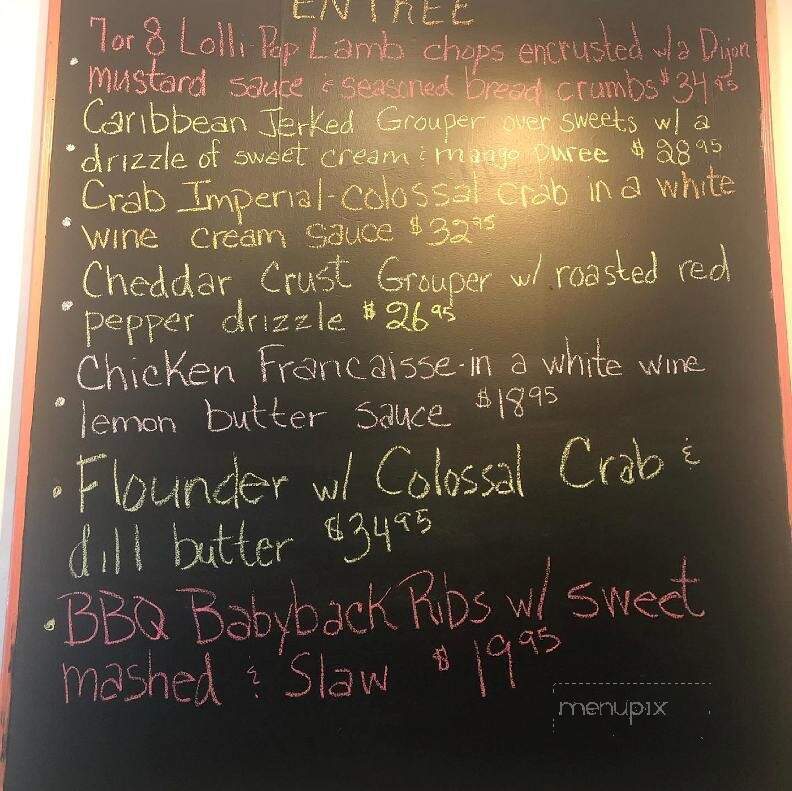 ENTREE
7 or 8 Lolli Pop Lamb chops encrusted w/a Dijon
mustard sauce & seasoned bread crumbs $34.95
Caribbean Jerked Grouper over sweets w/ a
drizzle of sweet cream & mango puree $28.95
Crab Imperial-colossal crab in a white
wine cream sauce $32.95
Cheddar Crust Grouper w/ roasted red
pepper drizzle $26.95
Chicken Francaisse-in a white wine
lemon butter sauce $18.95
Flounder w/ Colossal Crab &
dill butter $34.95
BBQ Babyback Ribs w/ sweet
mashed & Slaw $19.95
menupix